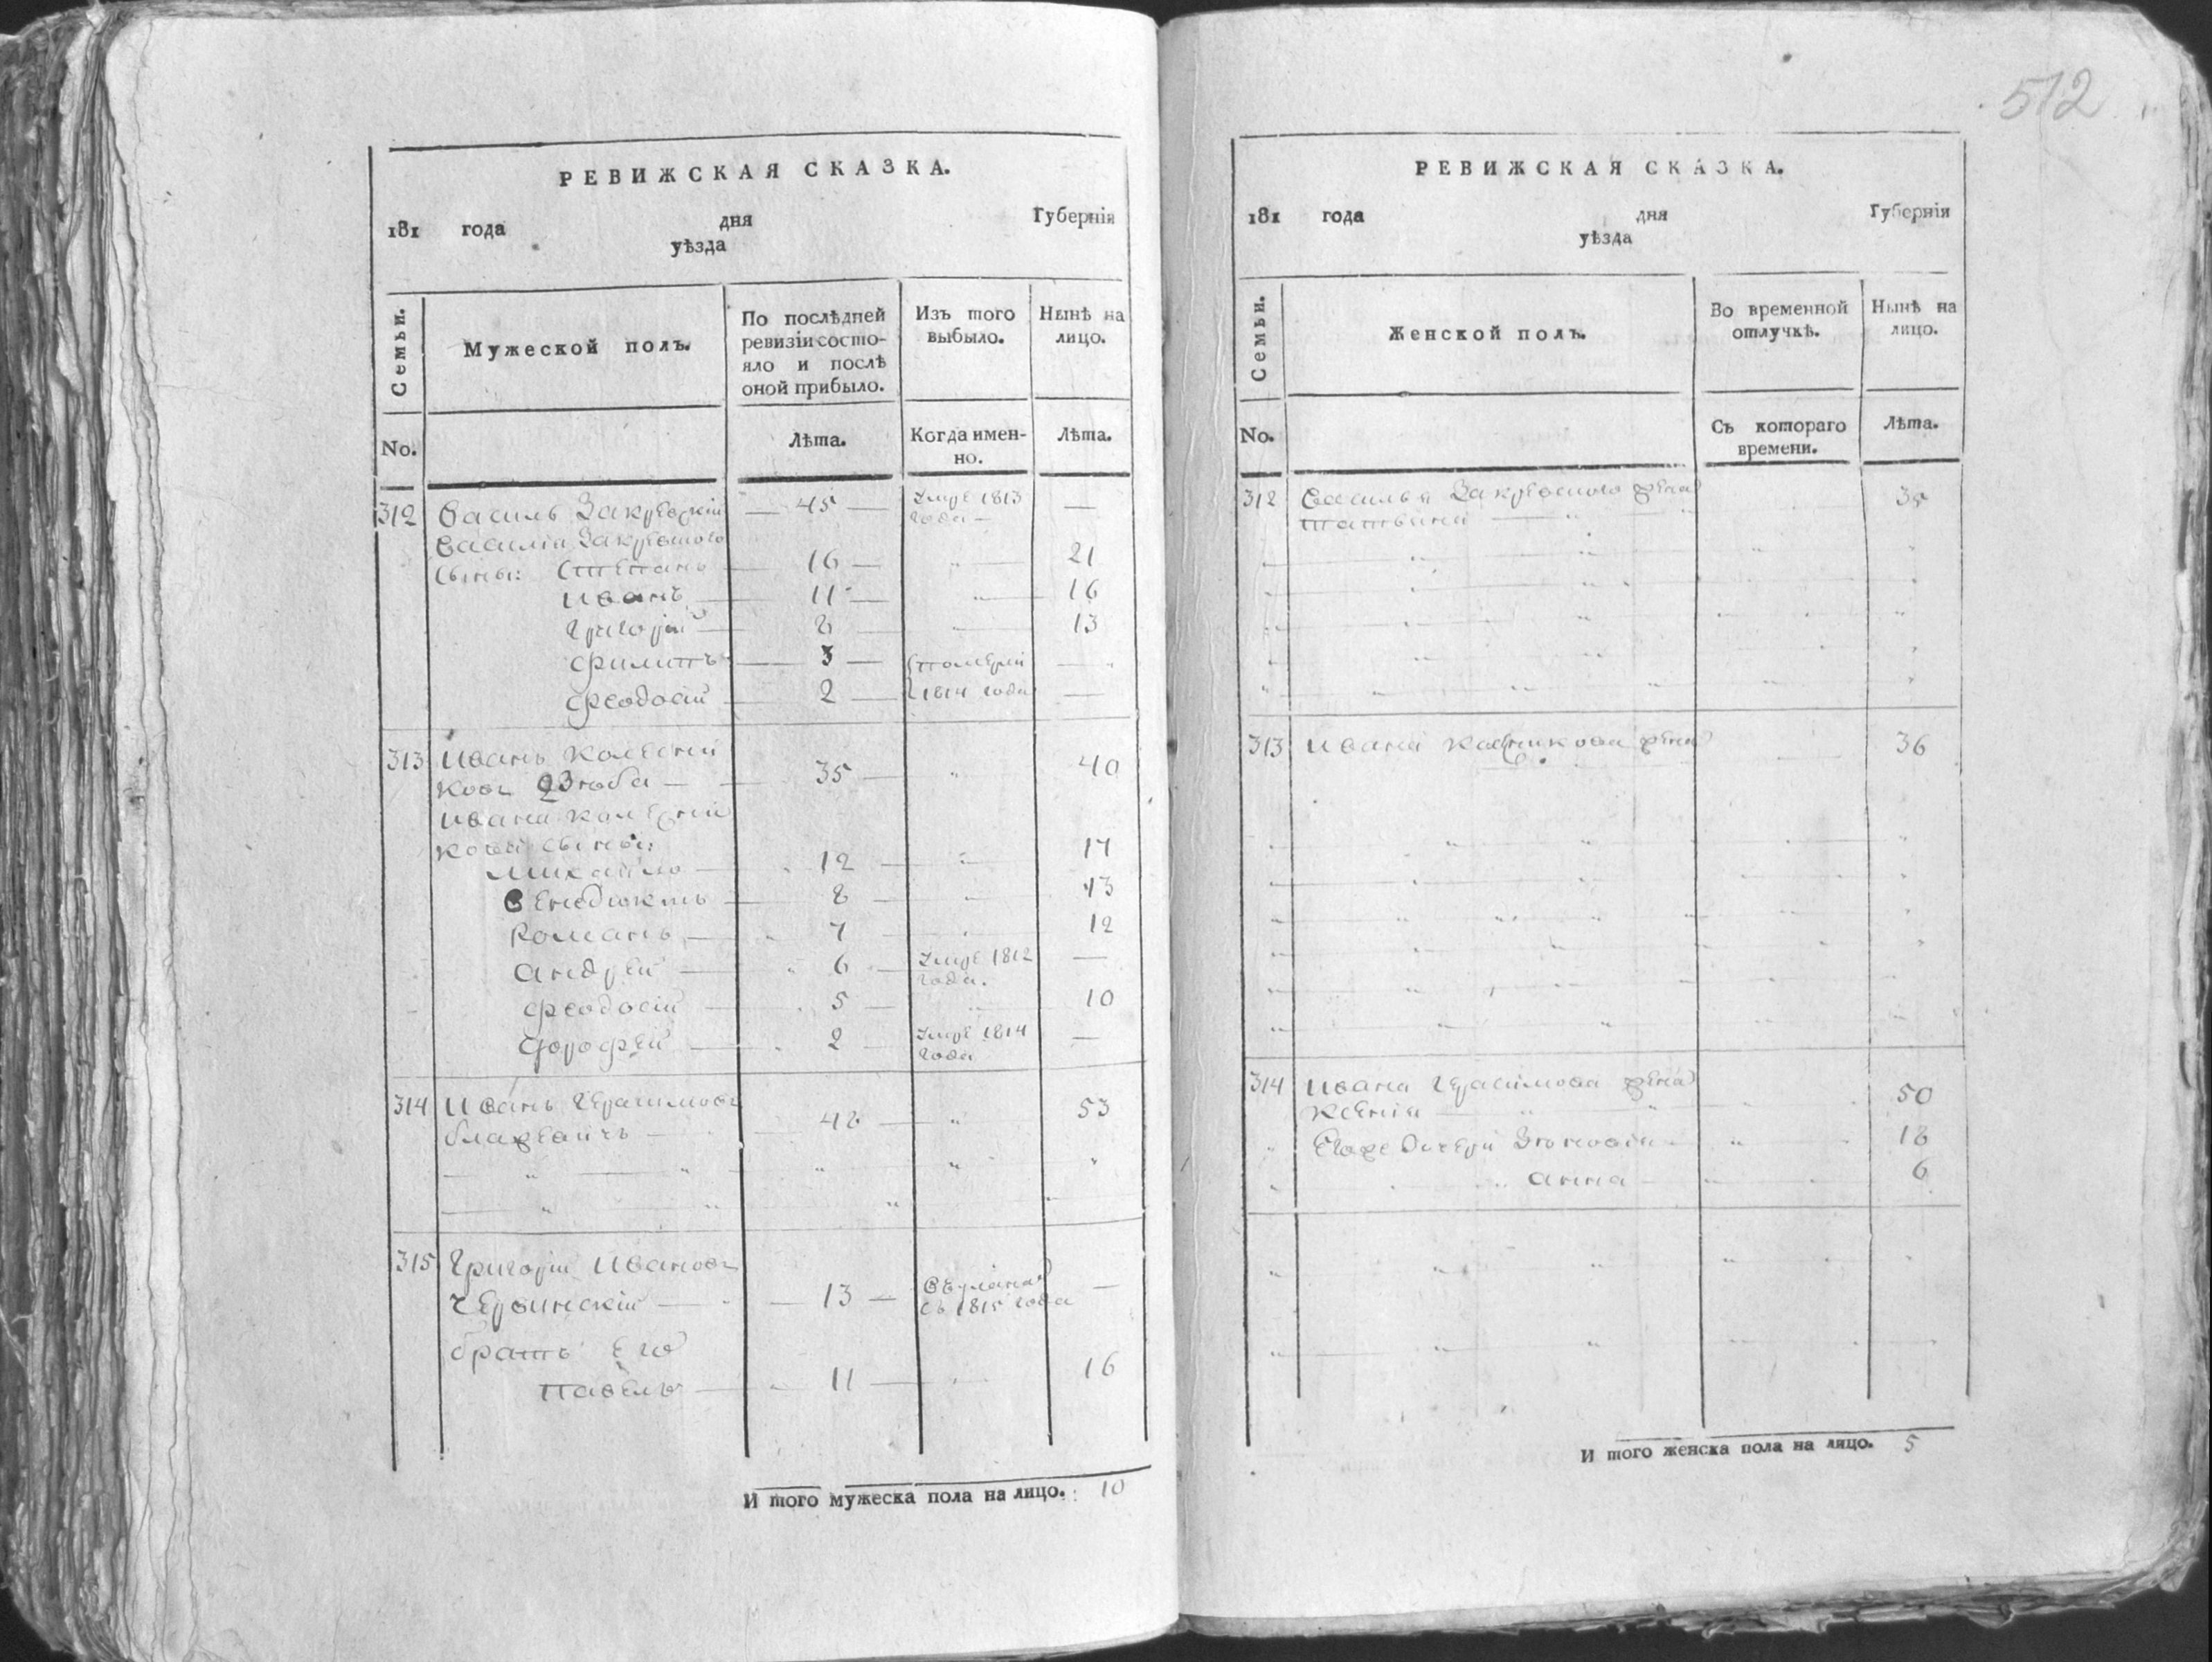 РЕВИЖСКАЯ СКАЗКА.
181 года дня Губернія
уѣзда
Семьи.
Мужеской полъ.
По послѣдней ревизіи состо-
яло и послѣ
оной прибыло.
Изъ того
выбыло.
Нынѣ на
лицо.
No.
Лѣта.
Когда имен-
но.
Лѣта.
312 Василь Закревскій — 45 — Умре 1813 года —
Василія Закревского
сыны: Степанъ 16 — 21
Иванъ 11 — 16
Григорій 8 13
Филипъ 3 — Померли —
Феодосій 2 — 1814 года —
313 Иванъ Колесни
ковъ Дзюба — 35 — 40
Ивана Колесни
кова сыны:
Михайло — 12 — 17
Венедиктъ 8 — 13
Романъ — 7 12
Андрей — 6 — Умре 1812 года. —
Феодосій 5 — 10
Дорофей — 2 Умре 1814 года —
314 Иванъ Герасимовъ
Блажевичъ — 48 — 53
315 Григорій Ивановъ
Червинскій — 13 —
съ 1815 года —
братъ Его
Павелъ — 11 — 16
И того мужеска пола на лицо. 10
512
РЕВИЖСКАЯ СКАЗКА.
181 года дня Губернія
уѣзда
Семьи.
Женской полъ.
Во временной
отлучкѣ.
Нынѣ на
лицо.
No.
Съ котораго
времени.
Лѣта.
312 Василья Закревского жена 35
Татьяна
313 Ивана Колесникова жена 36
314 Ивана Герасимова жена
Ксенія 50
Егоже дочери Зѣновія 18
Анна 6
И того женска пола на лицо. 5